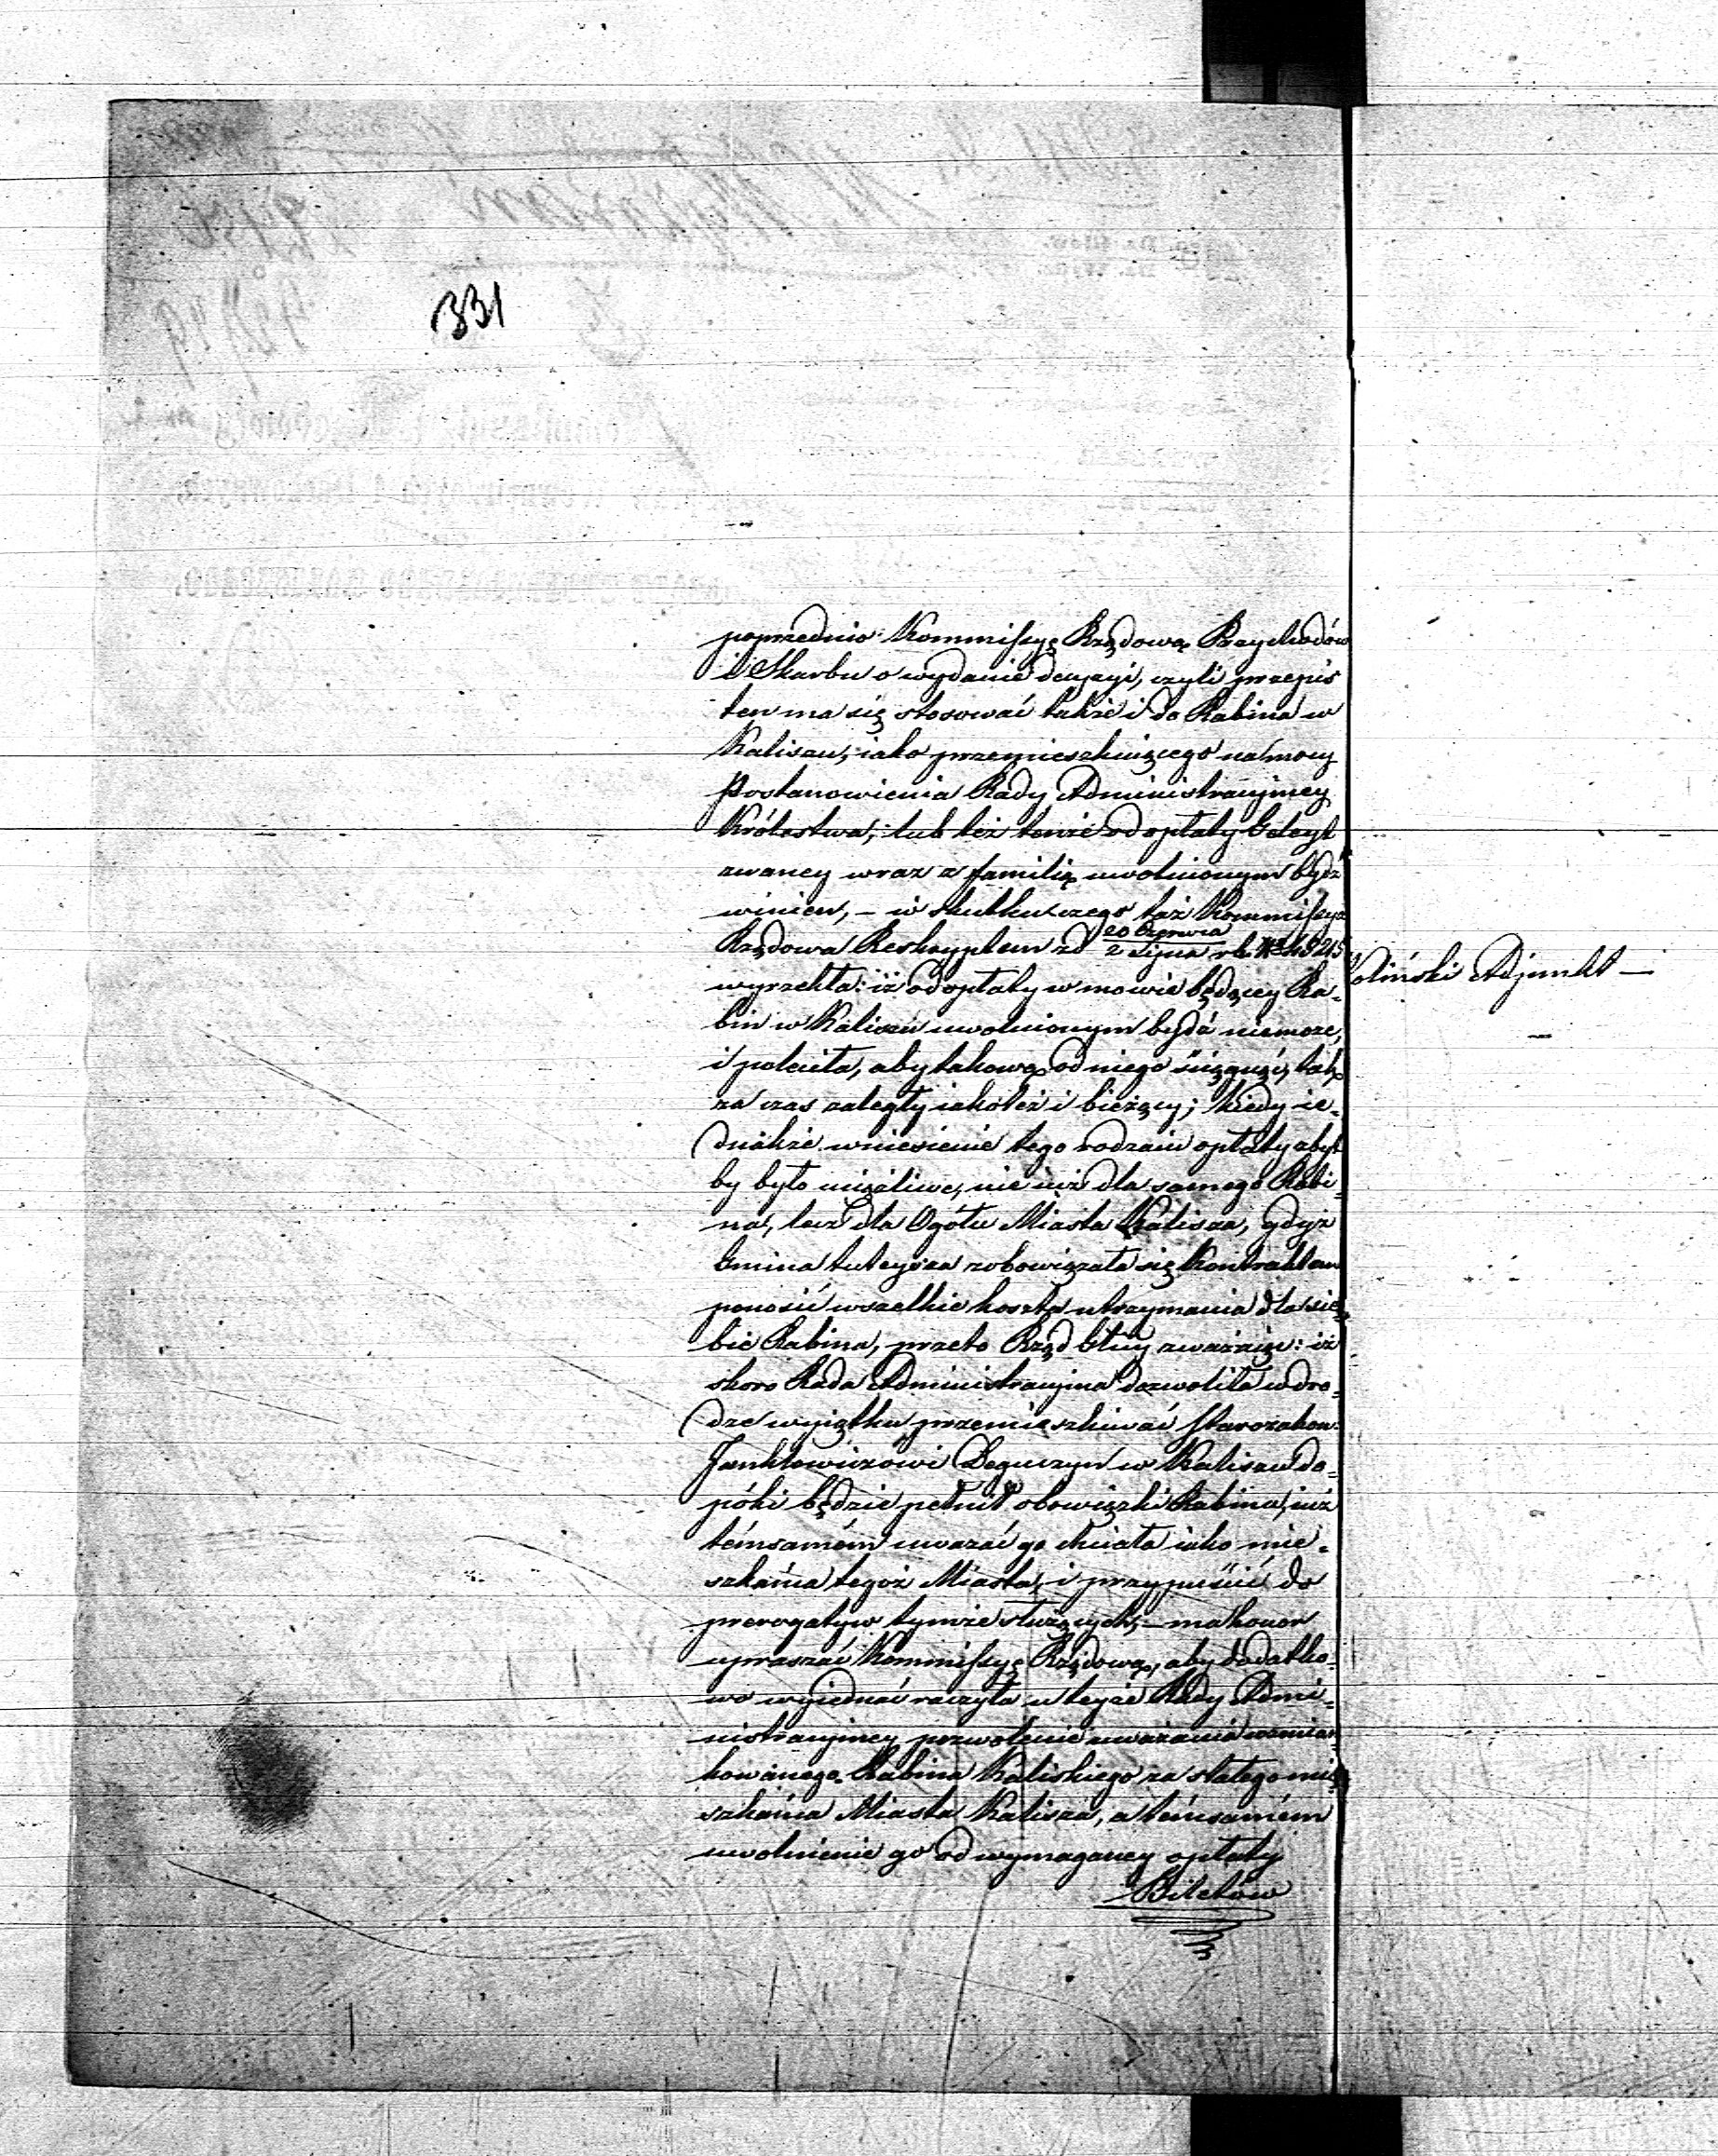 331
poprzednio Kommissyę Rządową Przychodów
i Skarbu o wydanie decyzyi, czyli przepis
ten ma się stosować także i do Rabina w
Kaliszu, iako przemieszkuiącego na mocy
Postanowienia Rady Administracyiney
Królestwa, lub też tenże od opłaty Geleyt
zwaney wraz z familią uwolnionym bydź
winien, – w skutku czego taż Kommissya
Rządowa Reskryptem zd 20 Czerwca / 2 Lipca rb. N
wyrzekła: iż od opłaty w mowie będącey Ra=
bin w Kaliszu uwolnionym bydź niemoże,
i poleciła, aby takową od niego ściągnąć, tak
za czas zaległy iakoteż i bieżący; kiedy ie=
dnakże wniesienie tego rodzaiu opłaty zbyt
by było uciążliwe, nie iuż dla samego Rabi=
na, lecz dla Ogółu Miasta Kalisza, gdyż
Gmina tuteysza zobowiązała się Kontraktem
ponosić wszelkie koszta utrzymania dla sie=
bie Rabina, przeto Rząd Gbny zważaiąc: iż
skoro Rada Administracyina dozwoliła w dro=
dze wyiątku przemieszkiwać Starozakon:
Janklowiczowi w Kaliszu do=
póki będzie pełnił obowiązki Rabina, iuż
témsamém uważać go chciała iako mie=
szkańca tegoż Miasta, i przypuścić do
prerogatyw tymże służących, – ma honor
upraszać Kommissyę Rządową, aby dodatko=
wo wyiednać raczyła u teyże Rady Admi=
nistracyiney pozwolenie uważania wzmian=
kowanego Rabina Kaliskiego za stałego mie=
szkańca Miasta Kalisza, a témsamém
uwolnienie go od wymaganey opłaty
Biletów
Adjunkt –